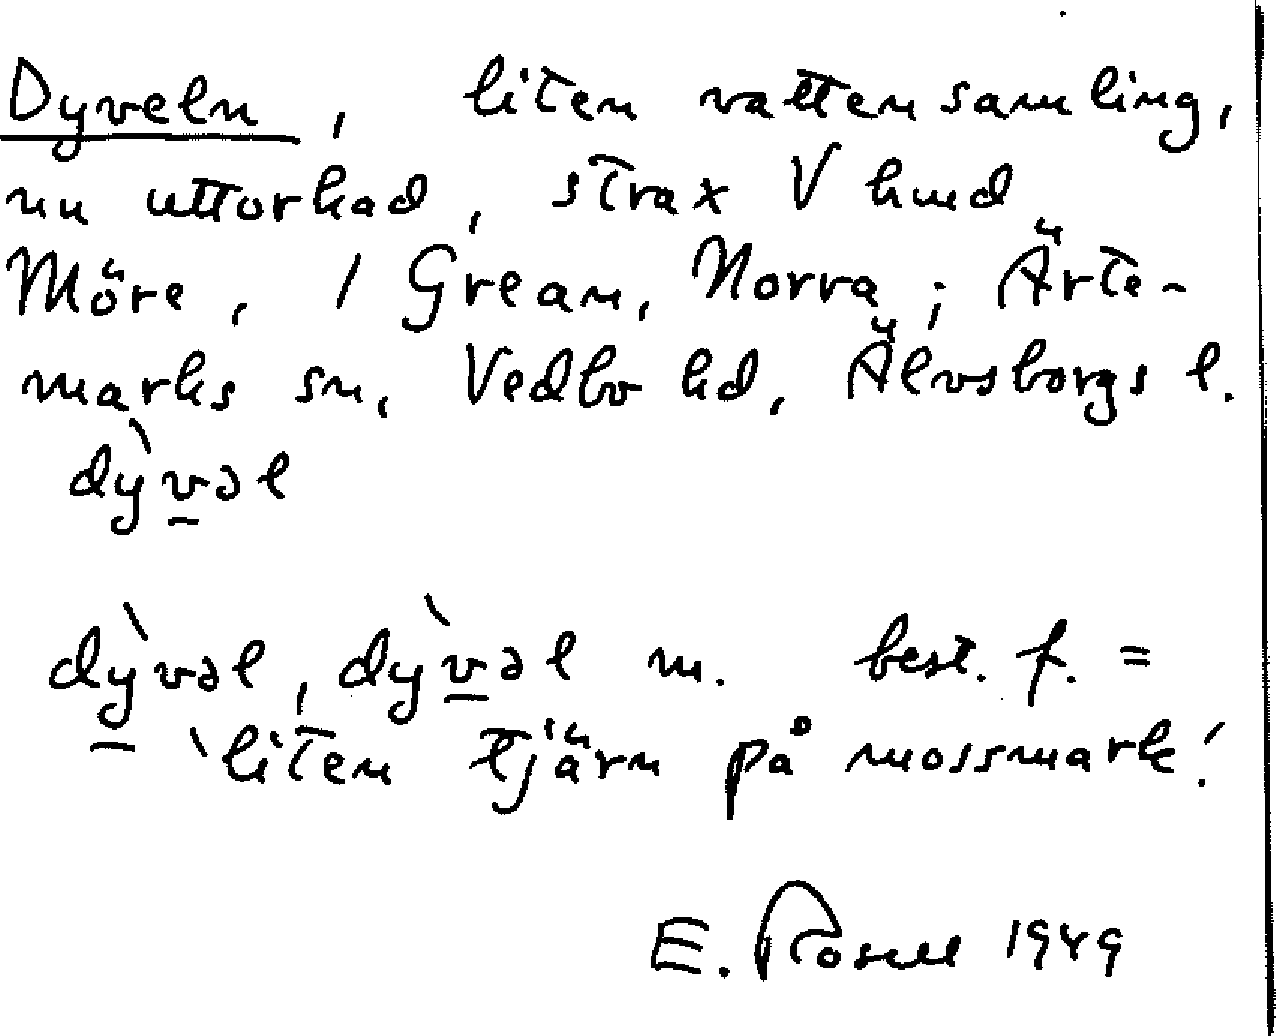 Dyveln, liten vattensamling,
nu uttorkad, strax V hmd
Möre, 1 Grean, Norra; Ärte-
marks sn, Vedbo hd, Älvsborgs l.
dỳ̕vəl
dỳvəl, dỳvəl m. best. f. =
'liten tjärn på mossmark'.
E. Rosell 1949